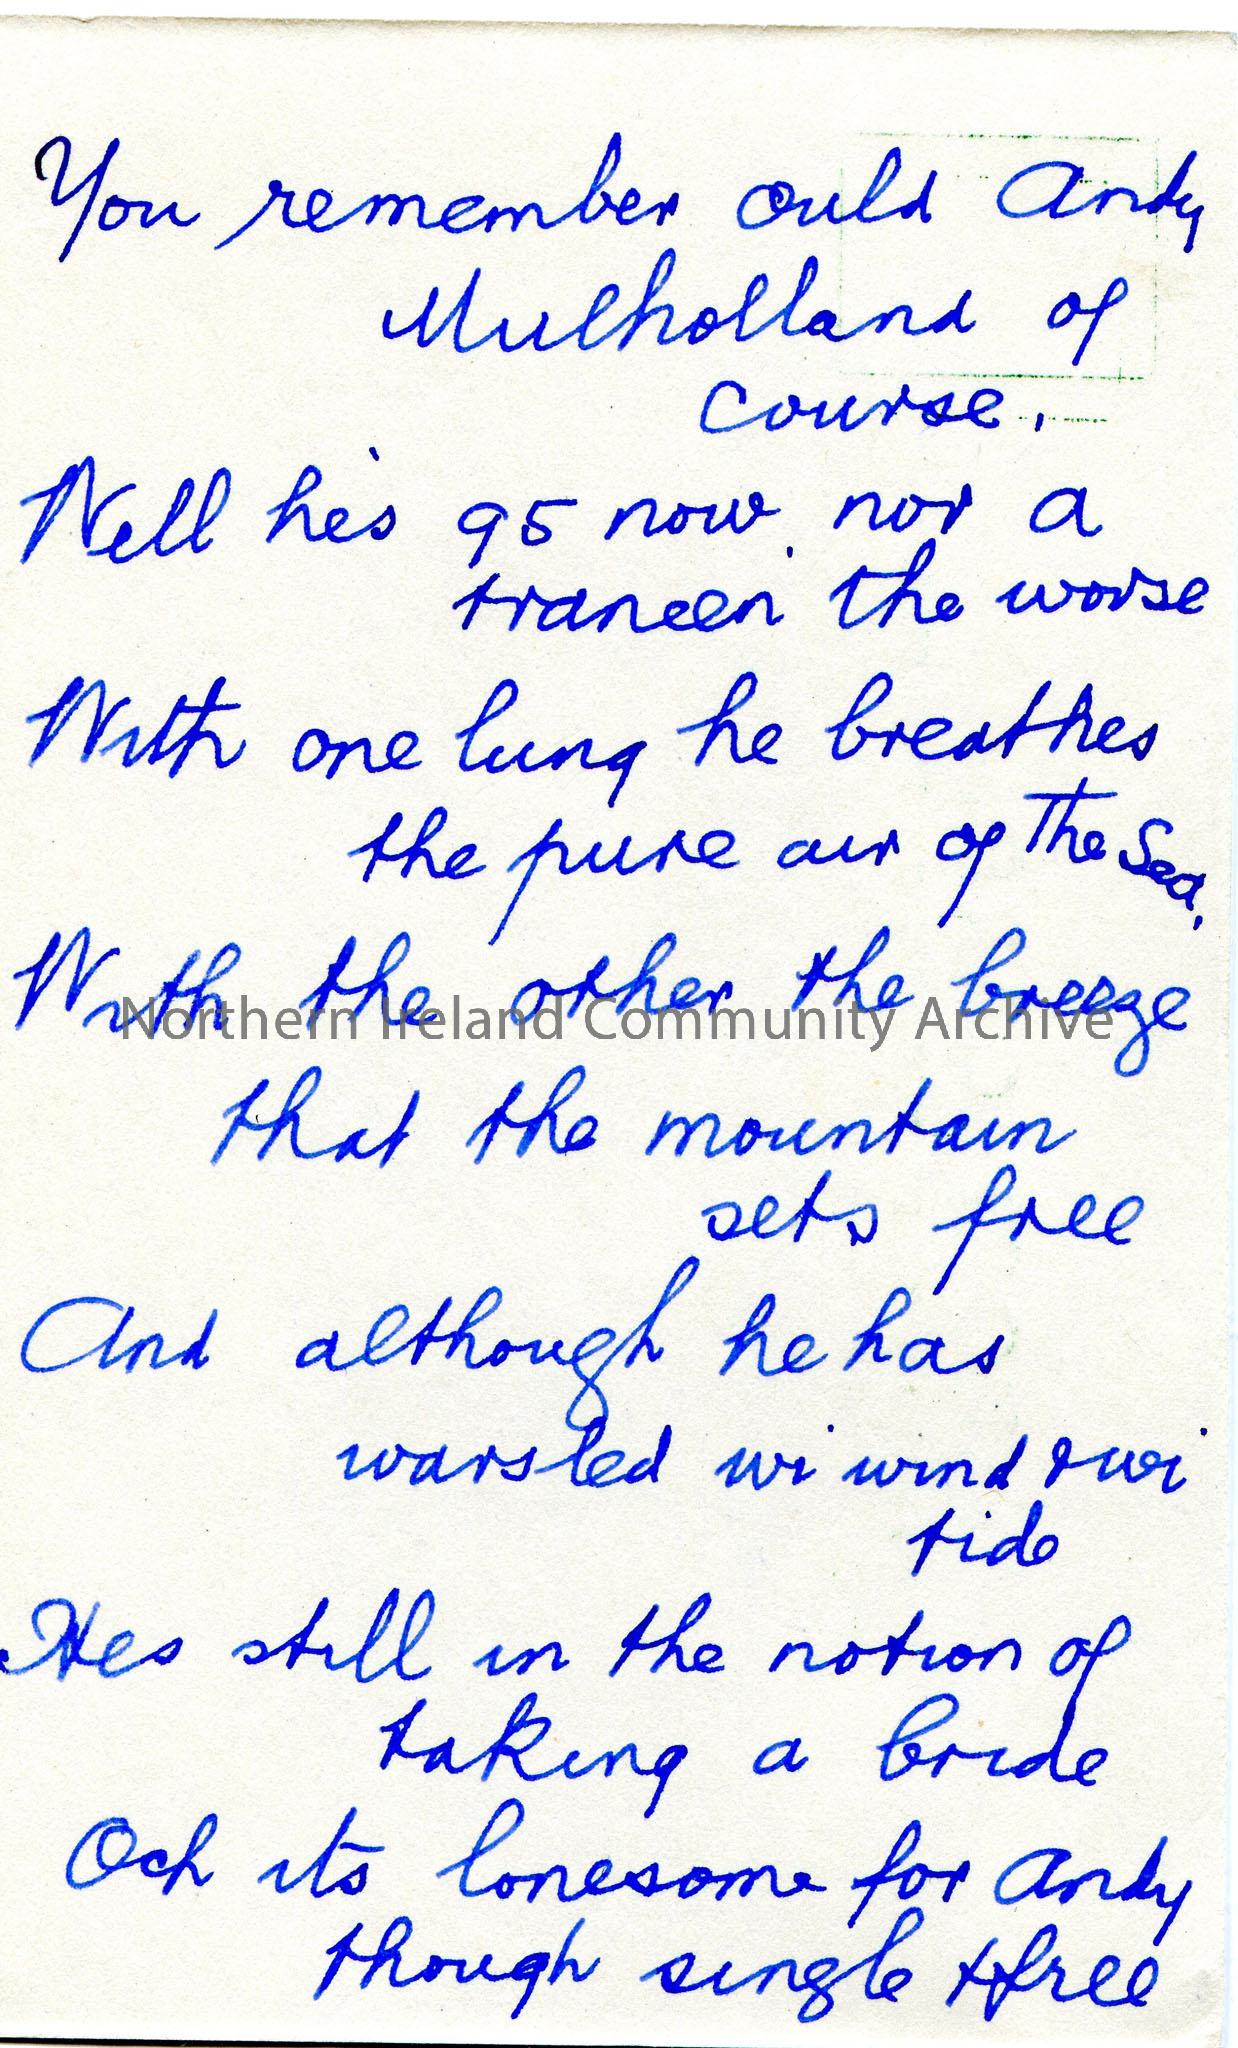 You remember ould Andy
Mulholland of
course.
Well he's 95 now nor a
traneen the worse
With one lung he breathes
the pure air of The Sea.
With the other the breeze
Northern Ireland Community Archive
that the mountain
sets free
And although he has
warsled wi wind & wi
tide
Hes still in the notion of
taking a bride
Och its lonesome for Andy
though single & free